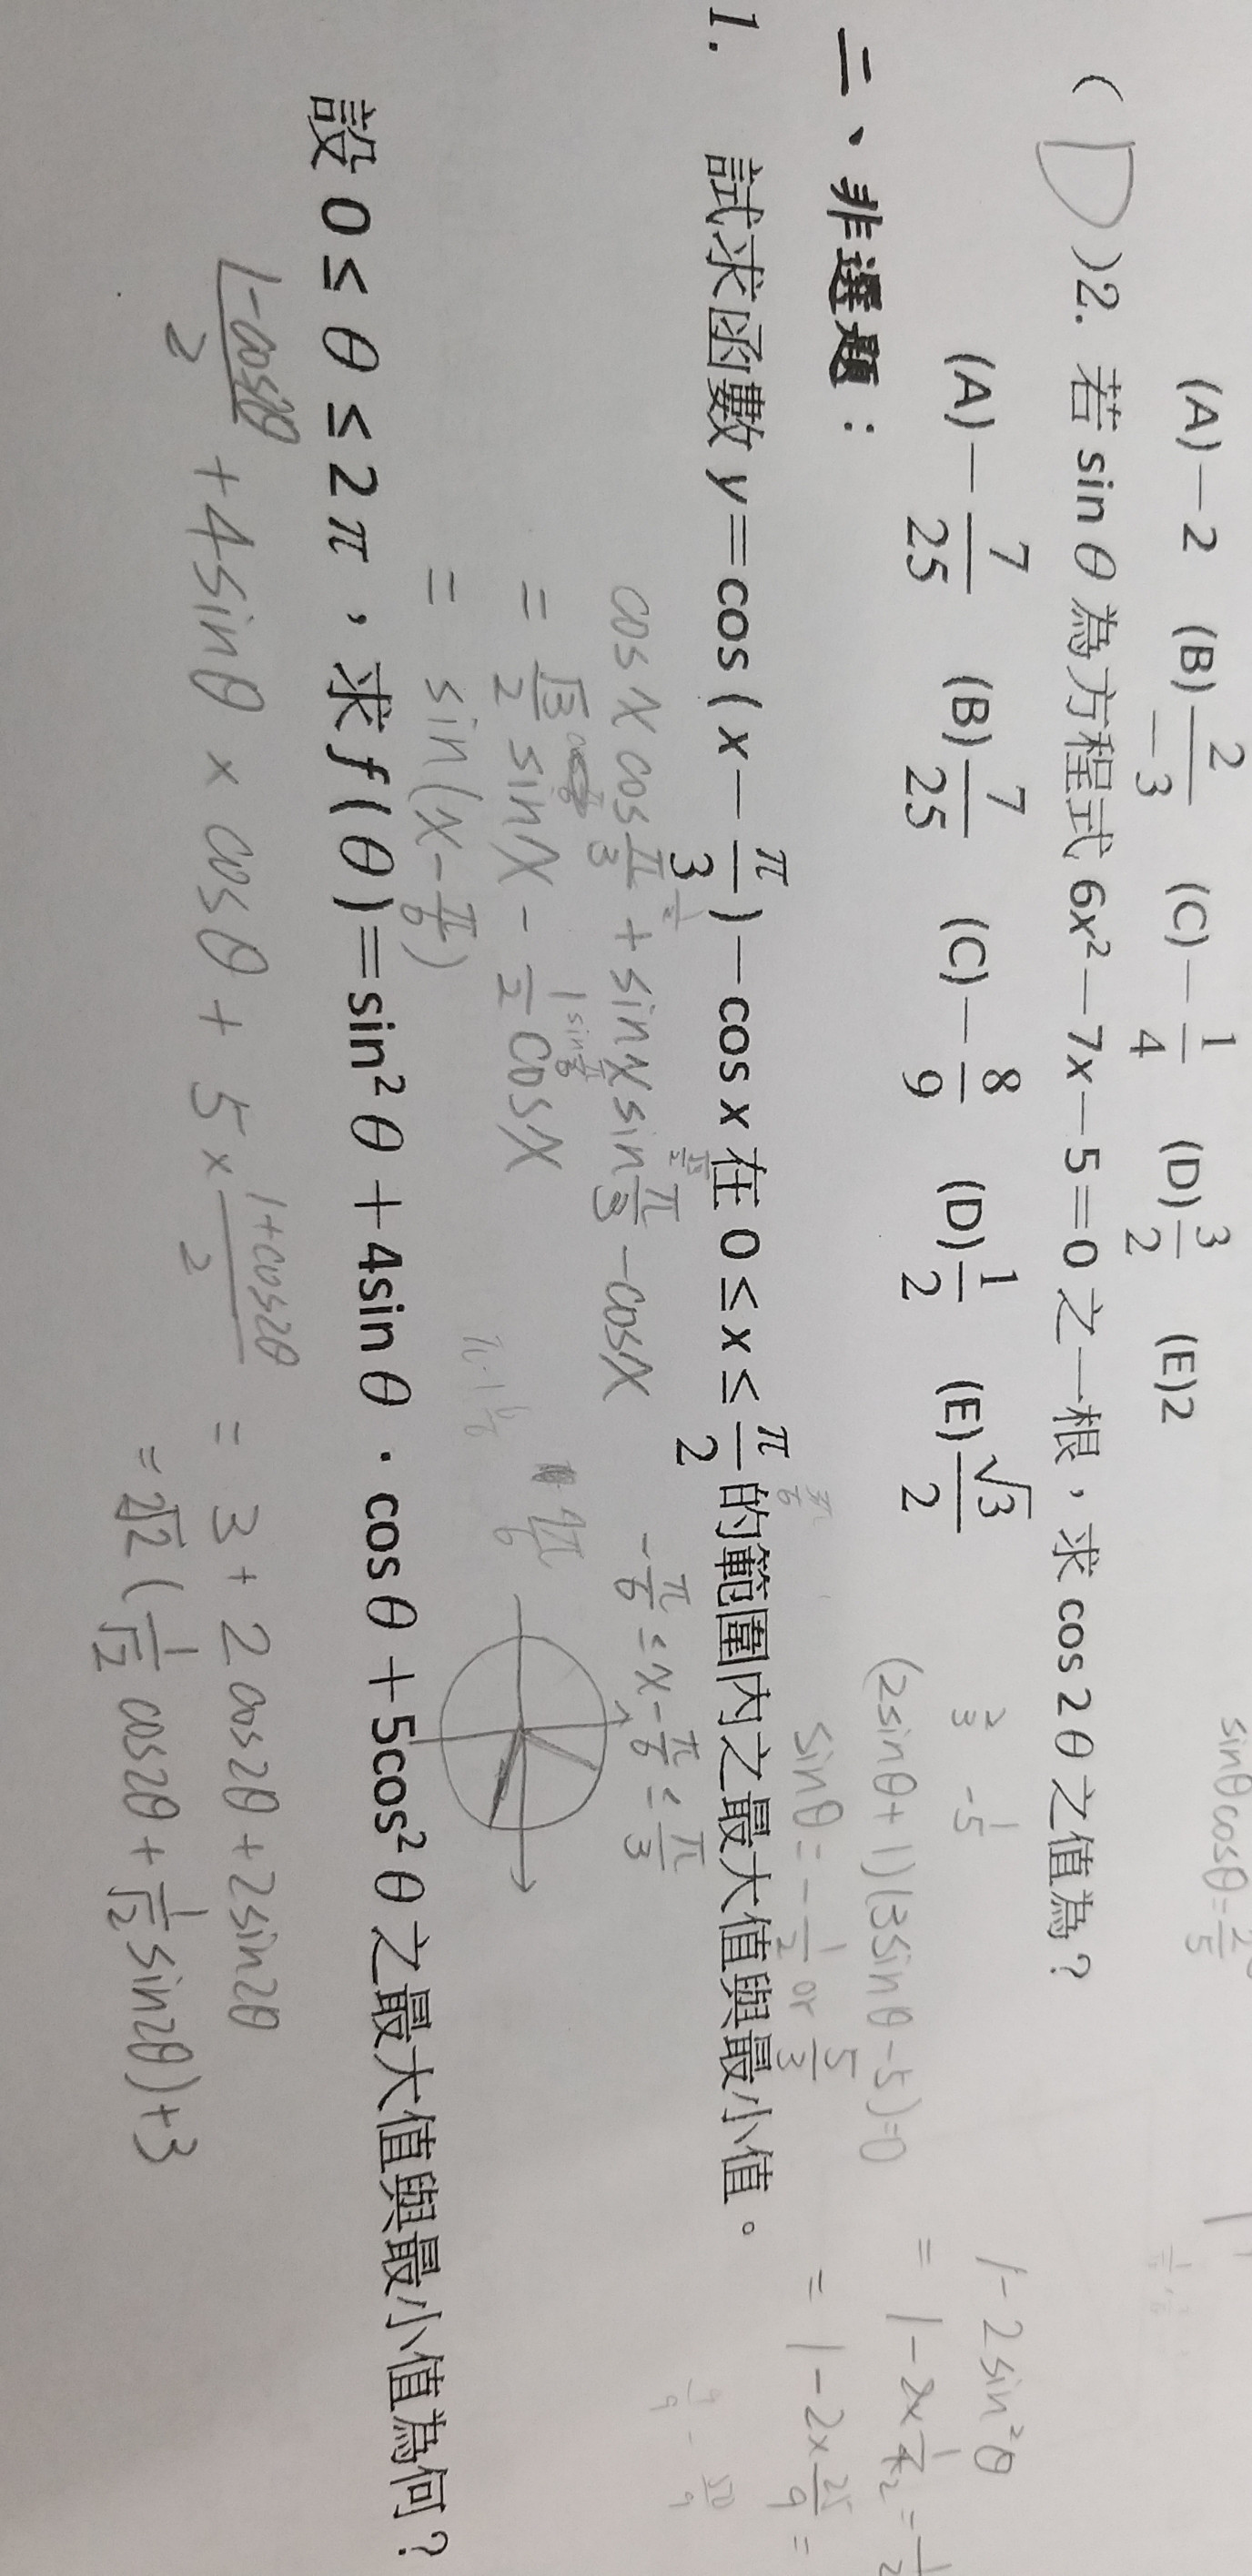 sinθcosθ=
(A)－2 (B)2/－3 (C)－1/4 (D)3/2 (E)2
(D)2. 若 sin θ 為方程式 6x²－7x－5=0 之一根，求 cos 2θ 之值為？
(A)－7/25 (B)7/25 (C)－8/9 (D)1/2 (E)√3/2
2/3 -1/5
(2sinθ+1)(3sinθ-5)=0
sinθ=-1/2 or 5/3
1-2sin²θ
=1-2×1/4
=1-2×25/9=
二、非選題：
1. 試求函數 y=cos(x－π/3)－cos x 在 0≤x≤π/2 的範圍內之最大值與最小值。
cosx cosπ/3 + sinx sinπ/3 - cosx
= √3/2 sinx - 1/2 cosx
= sin(x-π/6)
-π/6 ≤ x-π/6 ≤ π/3
設 0≤θ≤2π，求 f(θ)=sin²θ＋4sin θ．cos θ＋5cos²θ 之最大值與最小值為何？
1-cos2θ/2 + 4sinθ × cosθ + 5× 1+cos2θ/2 = 3+2cos2θ+2sin2θ
= 2√2 (1/√2 cos2θ + 1/√2 sin2θ)+3